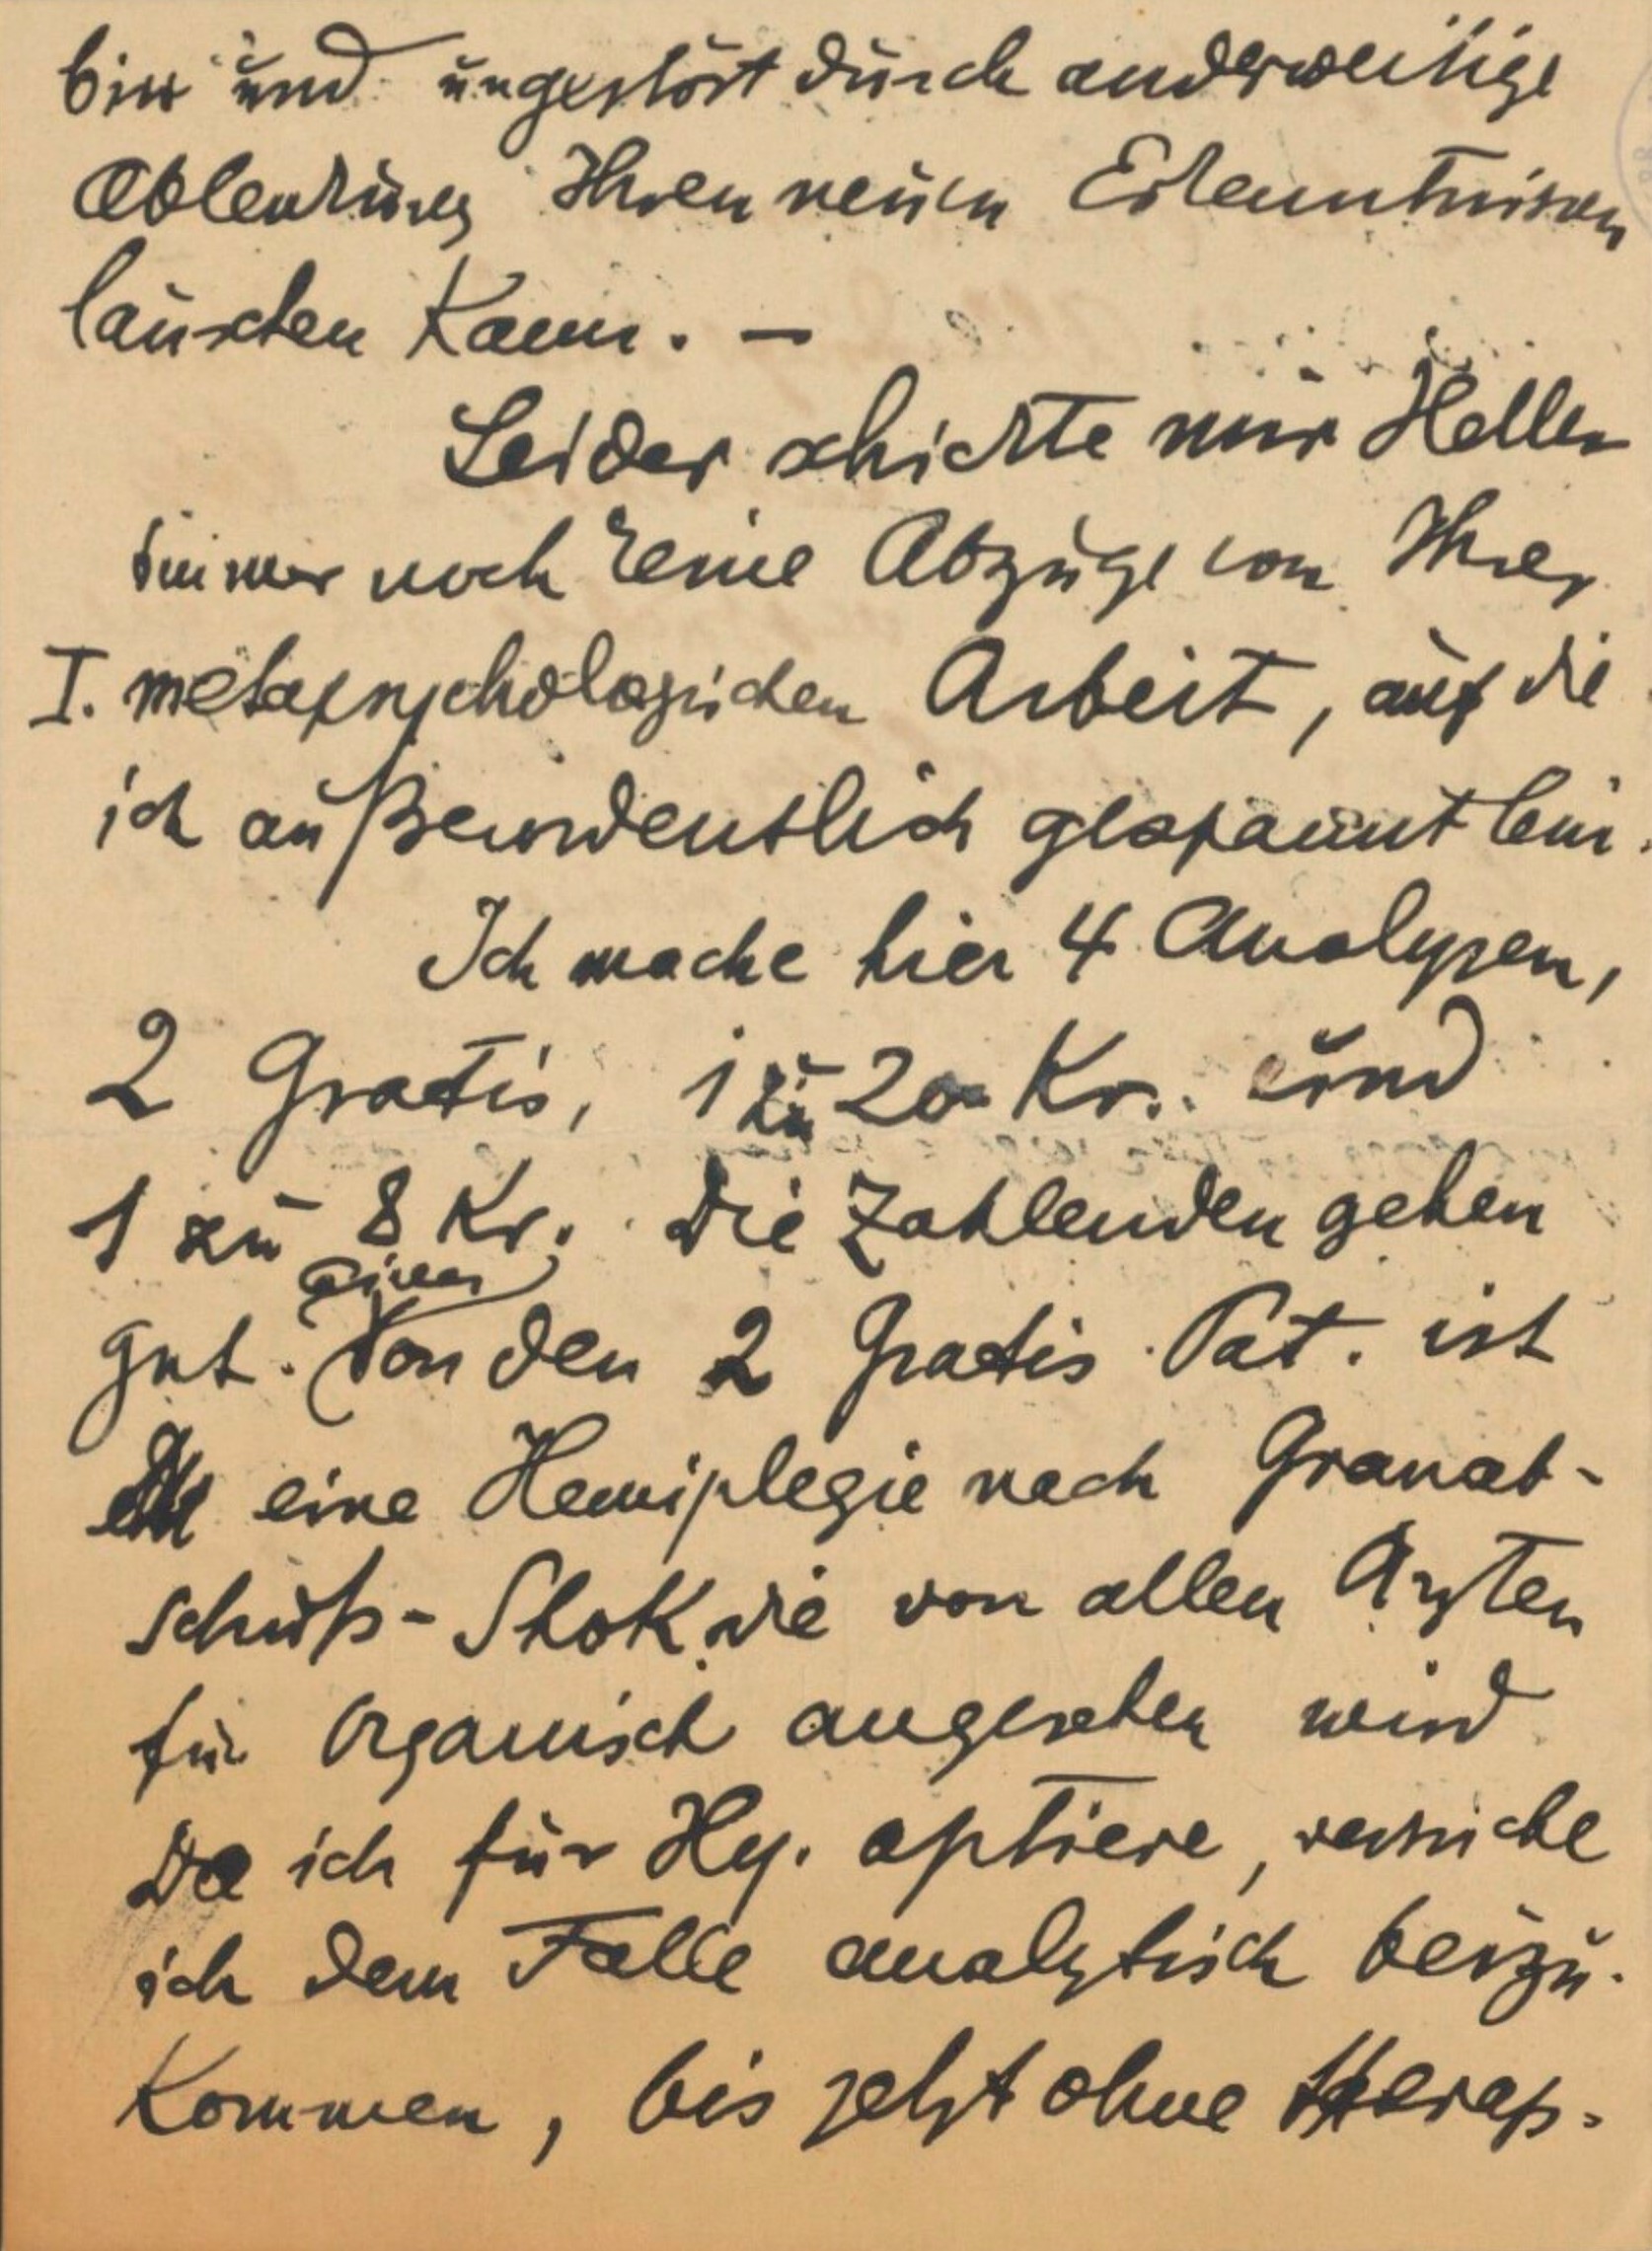 bin und ungestört durch anderweitige
Ablenkung Ihren neuen Erkenntnissen
lauschen Kann. –
Leider schickte mir Heller
immer noch keine Abzüge von Ihrer
I. metapsychologischen Arbeit, auf die
ich außerordentlich gespannt bin.
Ich mache hier 4 Analysen,
2 Gratis, 1 zu 20 Kr. und
1 zu 8 Kr. Die Zahlenden gehen
einer
gut. Von den 2 Gratis Pat. ist
eine Hemiplegie nach Granat-
schuß-Shok die von allen Ärzten
für Organisch angesehen wird
Da ich für Hy. optiere, versuche
ich dem Falle analytisch beizu-
Kommen, bis jetzt ohne therap.